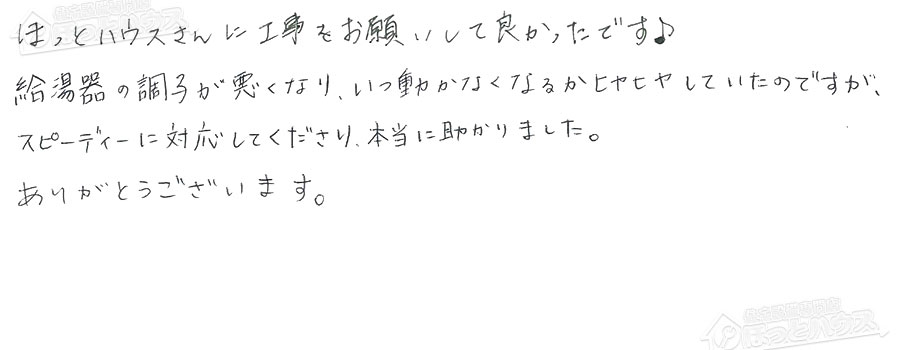 ほっとハウスさんに工事をお願いして良かったです♪
給湯器の調子が悪くなり、いつ動かなくなるかヒヤヒヤしていたのですが、
スピーディーに対応してくださり、本当に助かりました。
ありがとうございます。
ほっとハウス